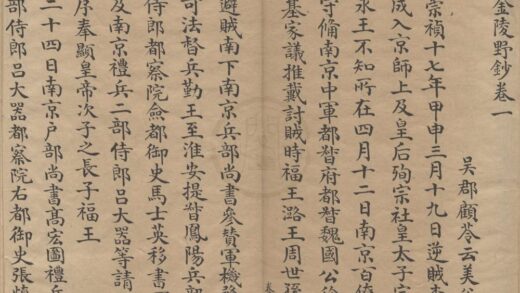 金陵野鈔卷一
吳郡顧苓云美
崇禎十七年甲申三月十九日逆賊李
成入京師上及皇后殉宗社皇太子定
永王不知所在四月十二日南京百僚
守備南京中軍都督府都督魏國公徐
基家議推戴討賊時福王潞王周世孫
卷
避賊南下南京兵部尚書參贊軍機務
可法督兵勤王至淮安提督鳳陽兵部
侍郎都察院僉都御史馬士英移書
及南京禮兵二部侍郎呂大器等請
序奉顯皇帝次子之長子福王
二十四日南京戶部尚書高宏圖禮兵
部侍郎呂大器都察院右都御史張慎